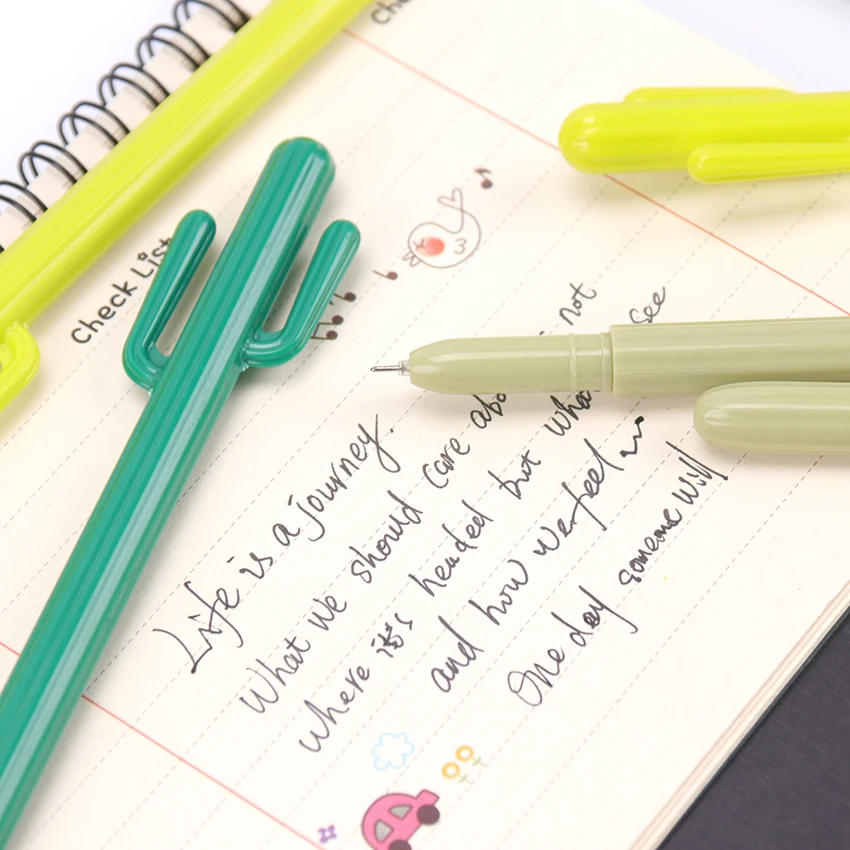 Check List
Life is a journey.
What we should care abo not
where it's headed but what see
and how we feel
One day someone will